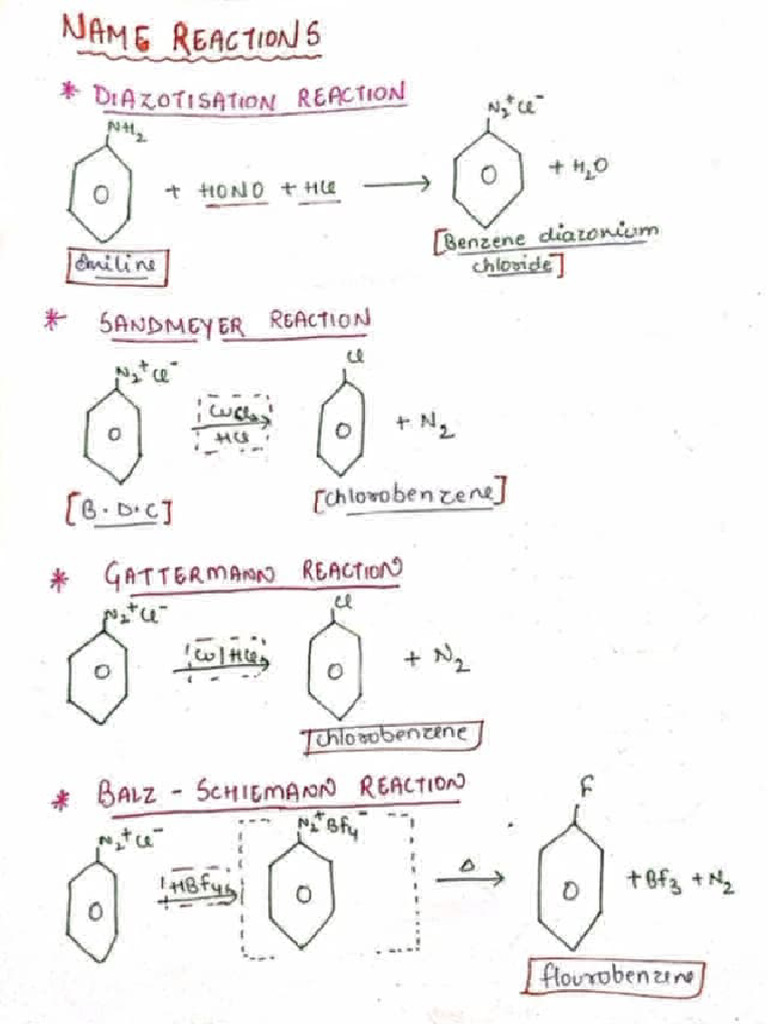 NAME REACTIONS
* DIAZOTISATION REACTION
NH₂
N₂⁺Cl⁻
+ HONO + HCl ⟶ + H₂O
Aniline
[Benzene diazonium
chloride]
* SANDMEYER REACTION
N₂⁺Cl⁻
Cl
HCl
+ N₂
[B.D.C]
[chlorobenzene]
* GATTERMANN REACTION
N₂⁺Cl⁻
Cl
Cu/HCl
+ N₂
chlorobenzene
* BALZ - SCHIEMANN REACTION
N₂⁺Cl⁻
N₂⁺Bf₄⁻
F
HBf₄
Δ
+ Bf₃ + N₂
flourobenzene